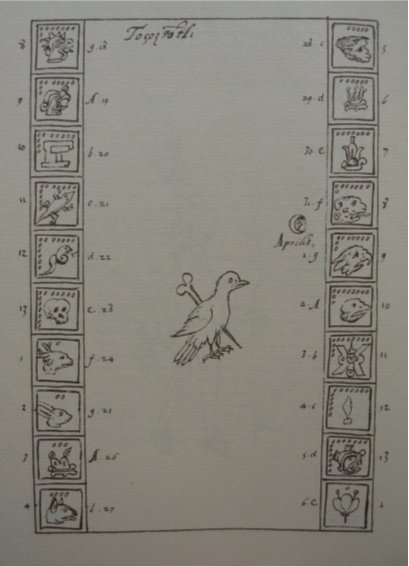 Toçoztōtli
8 g. 18
9 A. 19
10 b. 20
11 c. 21
12 d. 22
13 e. 23
1 f. 24
2 g. 25
3 A. 26
4 b. 27
28. c 5
29. d 6
30 e 7
31. f 8
Aprilis.
1. g 9
2. A 10
3. b 11
4. c 12
5. d 13
6 e 1